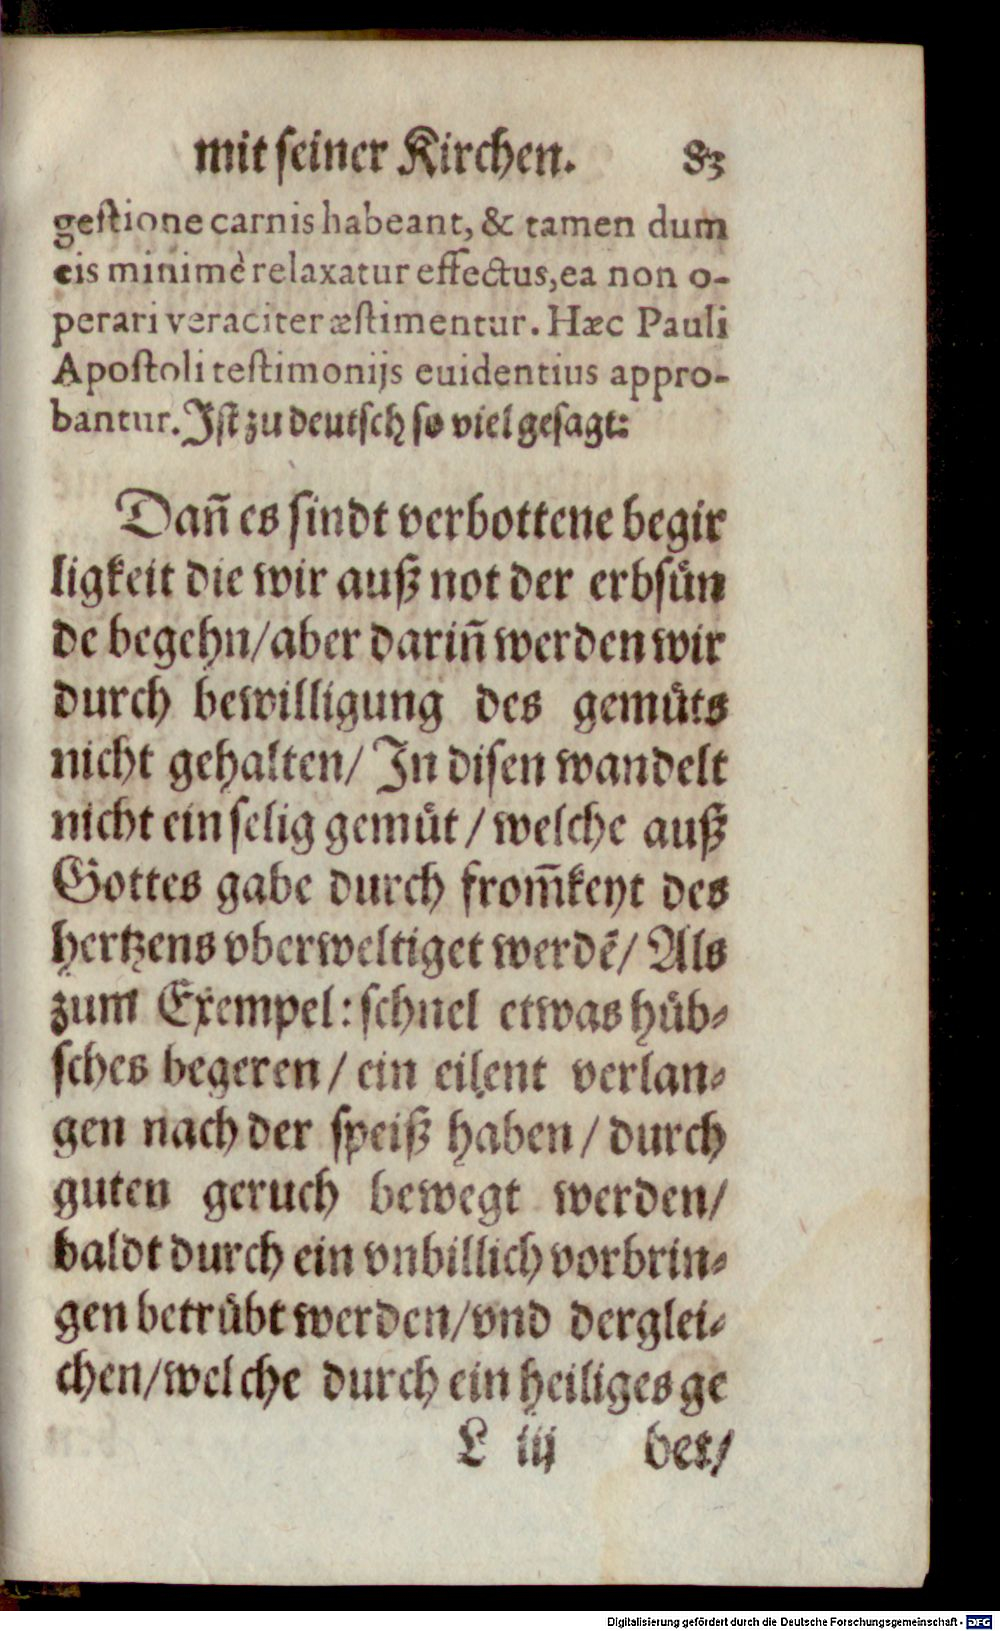 mit seiner Kirchen. 83
gestione carnis habeant, & tamen dum
eis minimè relaxatur effectus, ea non o-
perari veraciter æstimentur. Hæc Pauli
Apostoli testimonijs euidentius appro-
bantur. Ist zu deutsch so viel gesagt:
Dañ es sindt verbottene begir
ligkeit die wir auß not der erbsůn
de begehn/ aber dariñ werden wir
durch bewilligung des gemůts
nicht gehalten/ In disen wandelt
nicht ein selig gemůt / welche auß
Gottes gabe durch from̃keyt des
hertzens vberweltiget werdẽ/ Als
zum Exempel: schnel etwas hůb-
sches begeren / ein eilent verlan-
gen nach der speiß haben / durch
guten geruch bewegt werden/
baldt durch ein vnbillich vorbrin-
gen betrůbt werden/ vnd derglei-
chen/ welche durch ein heiliges ge
L iij bet/
Digitalisierung gefördert durch die Deutsche Forschungsgemeinschaft - DFG